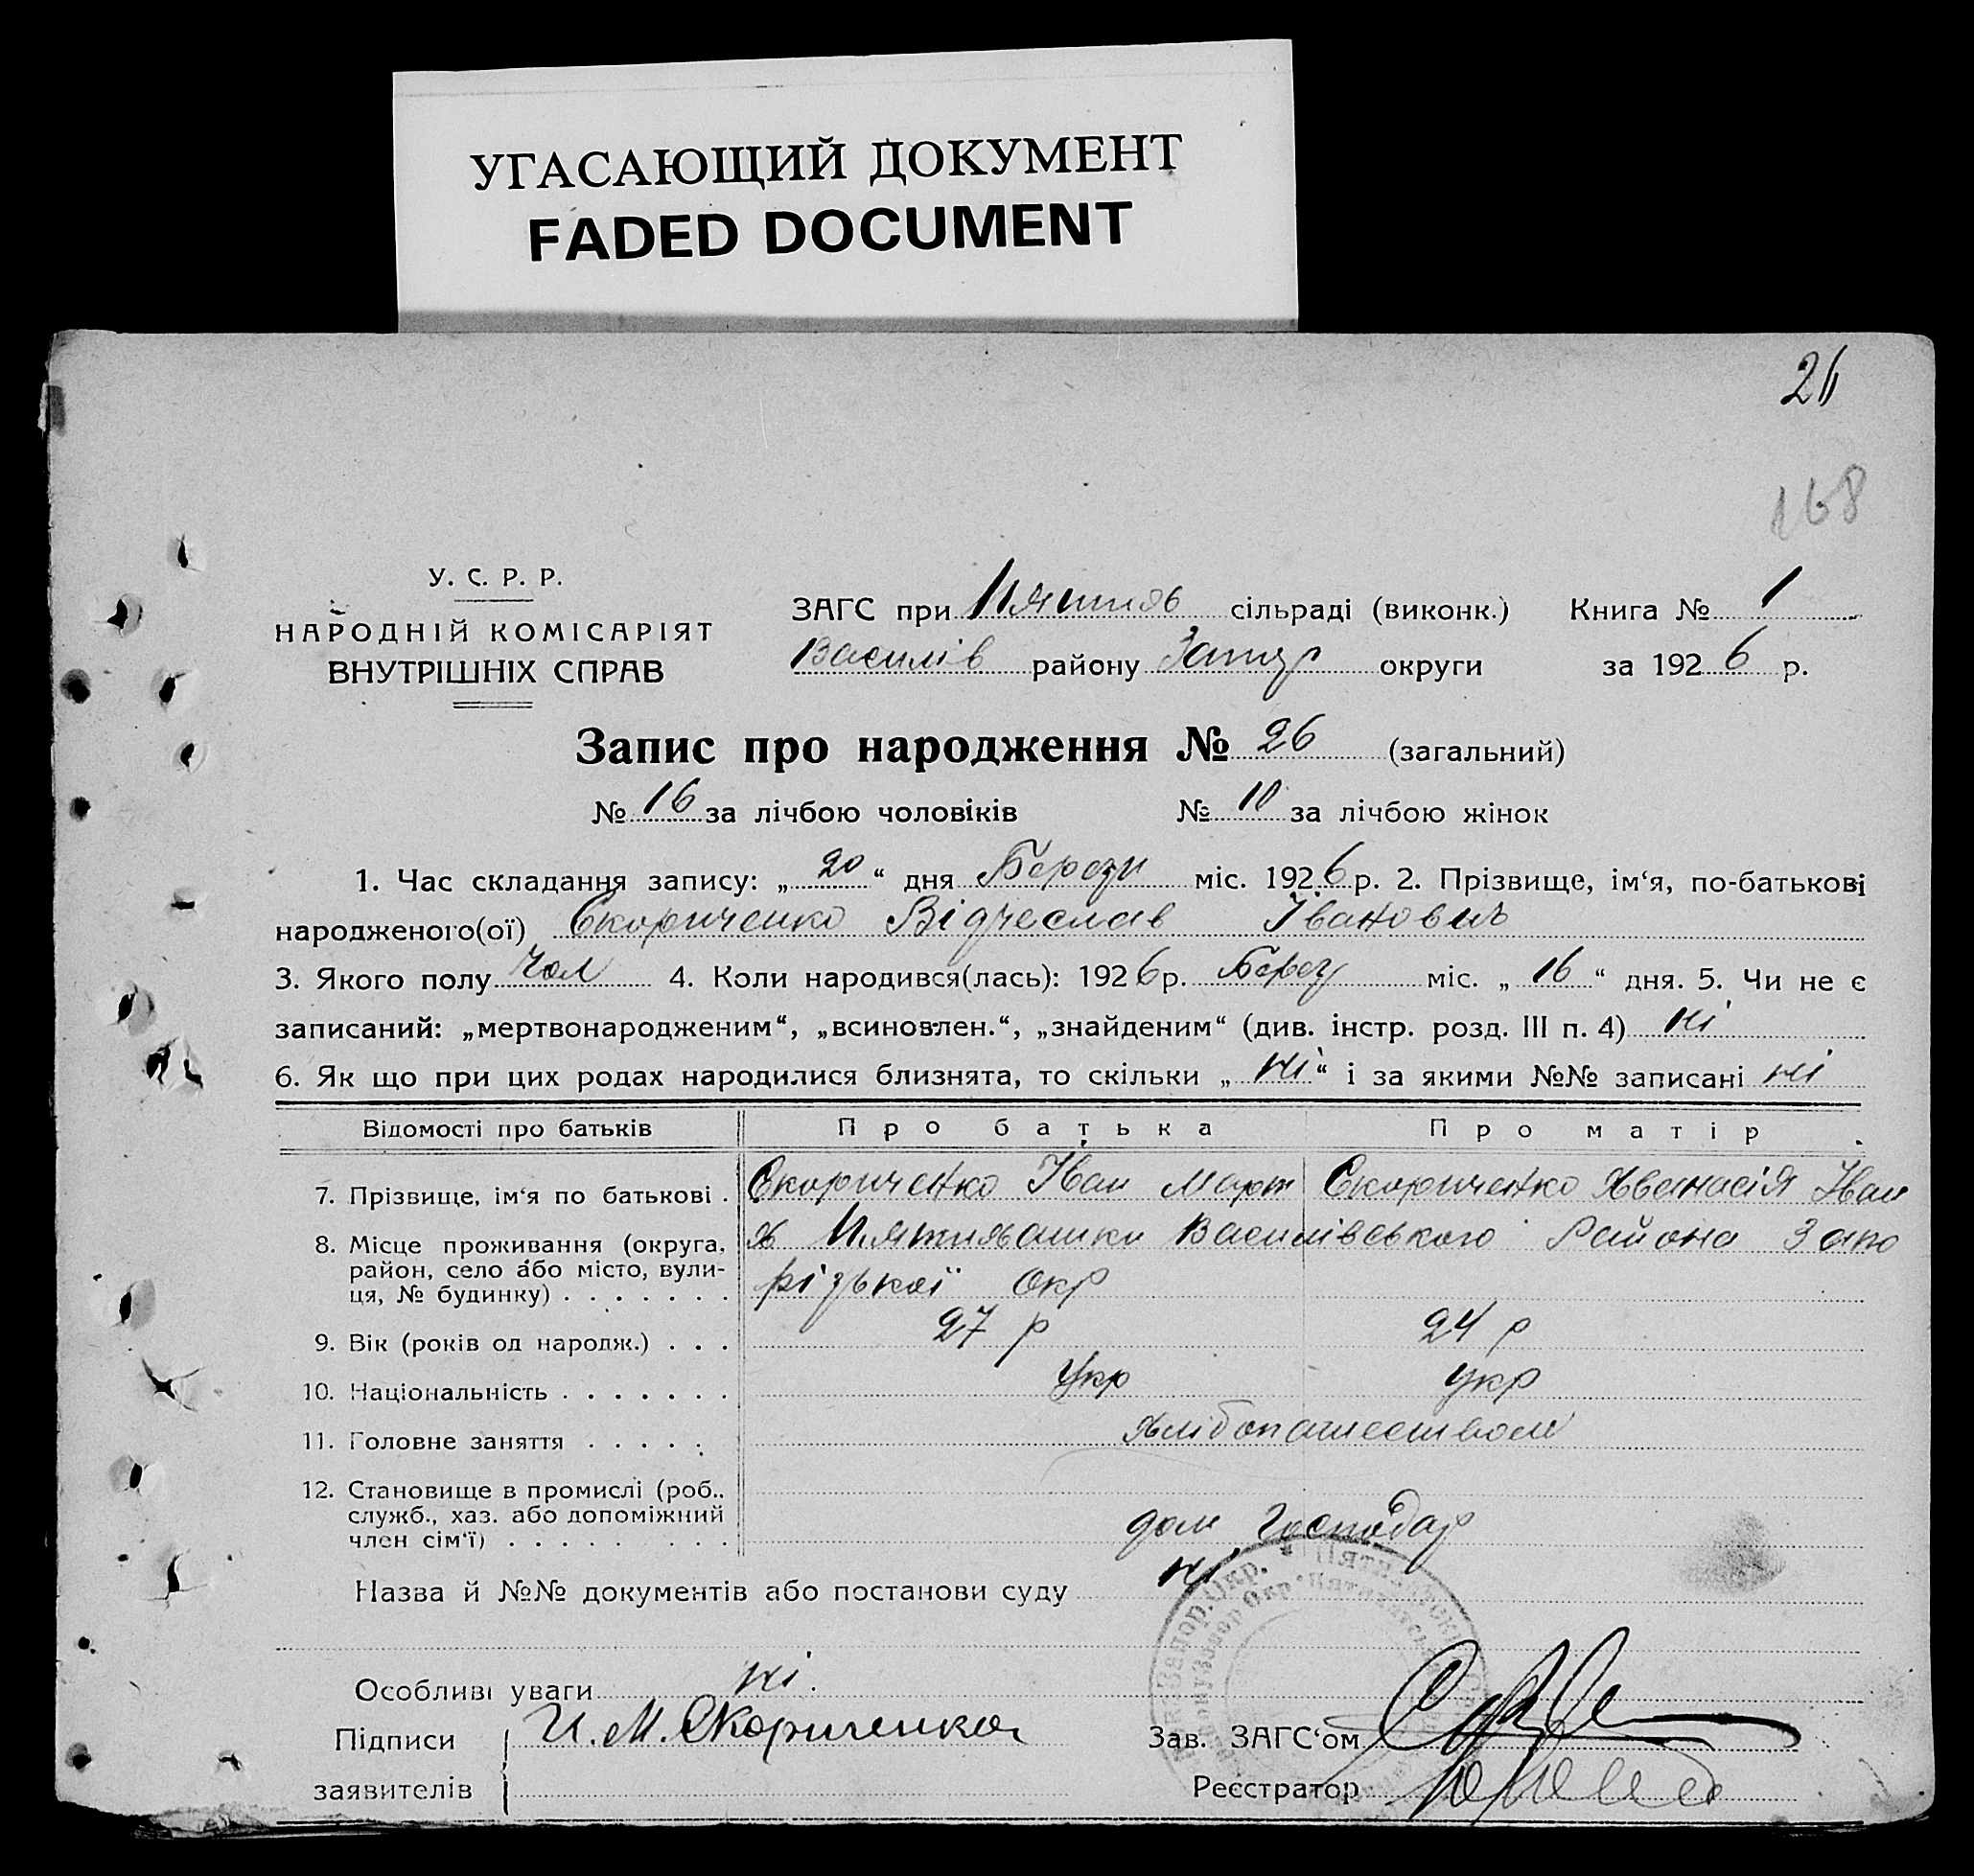 УГАСАЮЩИЙ ДОКУМЕНТ
FADED DOCUMENT
26
168
У. С. Р. Р.
НАРОДНІЙ КОМІСАРІЯТ
ВНУТРІШНІХ СПРАВ
ЗАГС при Пятихв сільраді (виконк.) Книга № 1
Василів району Запор округи за 1926 р.
Запис про народження № 26 (загальний)
№ 16 за лічбою чоловіків № 10 за лічбою жінок
1. Час складання запису: „20“ дня Березн міс. 1926 р. 2. Прізвище, ім‘я, по-батькові
народженого(ої) Скориченко Іванович
3. Якого полу чол 4. Коли народився(лась): 1926 р. Берез міс. „16“ дня. 5. Чи не є
записаний: „мертвонародженим“, „всиновлен.“, „знайденим“ (див. інстр. розд. III п. 4) ні
6. Як що при цих родах народилися близнята, то скільки „ні“ і за якими №№ записані ні
Відомості про батьків Про батька Про матір
7. Прізвище, ім‘я по батькові . Скориченко Іван Март Скориченко Іван
8. Місце проживання (округа, район, село або місто, вулиця, № будинку) . . . . . . . х Василівського Района Запо
різької Окр
9. Вік (років од народж.) . . . 27 р 24 р
10. Національність . . . . . . . Укр Укр
11. Головне заняття . . . . . хлібопашеством
12. Становище в промислі (роб.,
служб., хаз. або допоміжний
член сім‘ї) . . . . . . . . дом господар
Назва й №№ документів або постанови суду ні
Особливі уваги ні.
Підписи И. М. Скориченко Зав. ЗАГС‘ом
заявителів Реєстратор